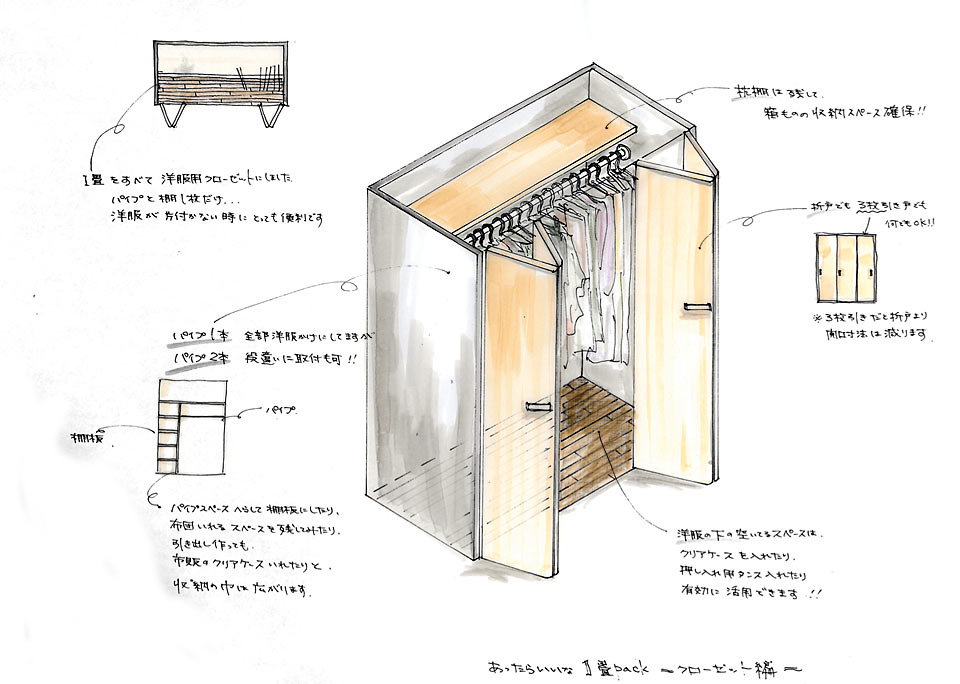 1畳をすべて 洋服用クローゼットにしました
パイプと棚1枚だけ...
洋服が片付かない時にとても便利です
枕棚は残して、
箱ものの収納スペース確保!!
折戸でも 3枚引き戸でも
何でもOK!!
※3枚引きだと折戸より
開口寸法は減ります
パイプ1本 全部洋服かけにしてますが
パイプ2本 段違いに取付も可!!
パイプ
棚板
パイプスペースへらして棚板にしたり、
布団いれるスペースを残してみたり、
引き出し作っても、
市販のクリアケースいれたりと、
収納の巾は広がります.
洋服の下の空いてるスペースは、
クリアケースを入れたり、
押し入れ用タンス入れたり
有効に活用できます!!
あったらいいな 1畳pack ～クローゼット編～